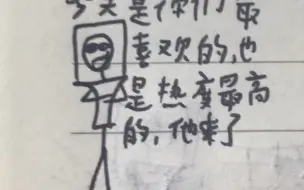 今天是你们最
喜欢的,也
是热度最高
的,他来了